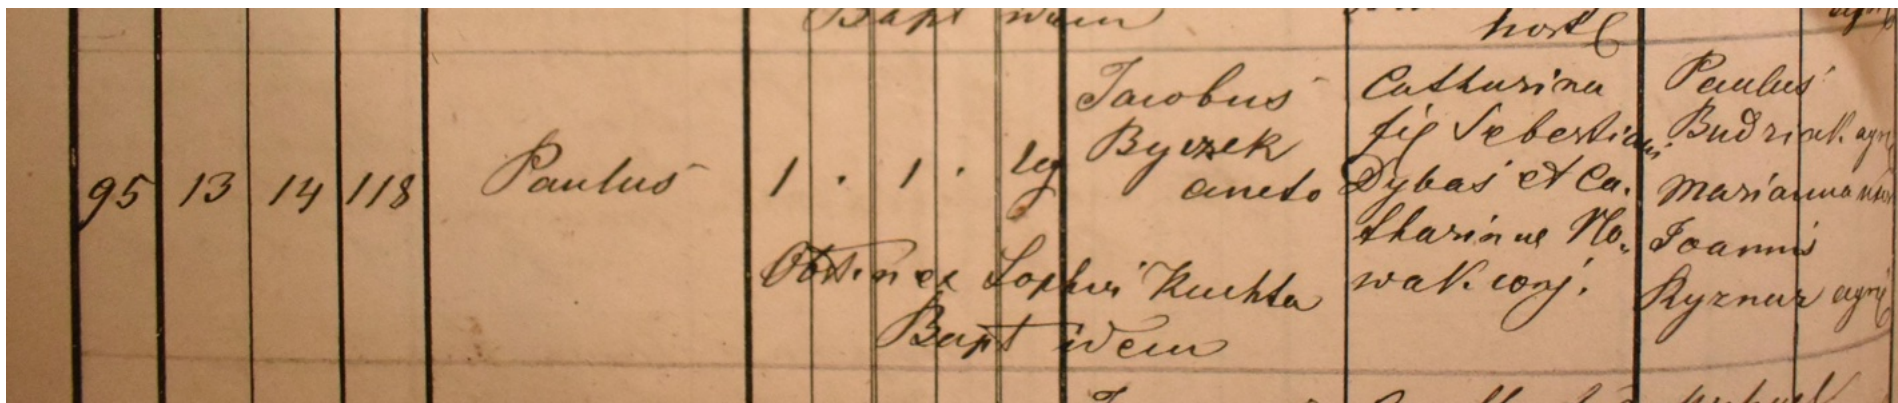 Bapt idem
hort
95 13 14 118 Paulus 1 . 1 . leg
Jacobus
Byczek
Catharina
fil Sebastiani
Dybaś et Ca-
tharinae No-
wak conj.
Paulus
Budziak agri
Marianna
Joannis
Kyznar agri
Obstetrix Sophia Kuchta
Bapt idem